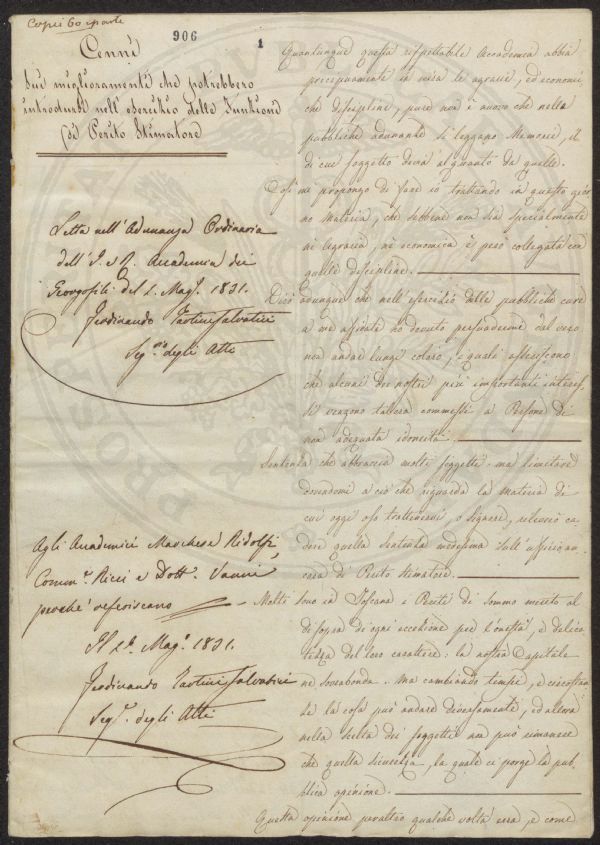 Copie 60 i parte
906
1
Cenni
Sui miglioramenti che potrebbero
introdursi nell'esercizio delle Funzioni
di Perito Stimatore
Letta nell'Adunanza Ordinaria
dell'I. e R. Accademia dei
Georgofili del 1. Mag.° 1831.
Ferdinando Tartini Salvatici
Seg.rio degli Atti
Agli Accademici Marchese Ridolfi,
Comm.e Ricci e Dott. Vanni
perché referiscano
Il 1.° Mag.° 1831.
Ferdinando Tartini Salvatici
Seg.° degli Atti
Quantunque questa rispettabile Accademia abbia
precipuamente in mira le agrarie, ed economi-
che discipline, pure non è nuovo che nelle
pubbliche adunanze si leggano Memorie, il
di cui soggetto devia alquanto da quelle.
Così mi propongo di fare io trattando in questo gior-
no Materia, che sebbene non sia specialmente
nè agraria, nè economica è però collegata con
quelle discipline.
Dico adunque che nell'esercizio delle pubbliche cure
a me affidate ho dovuto persuadermi dal vero
non andar lungi coloro, i quali asseriscono
che alcuni dei nostri più importanti interes-
si vengono talora commessi a Persone di
non adequata idoneità.
Sentenza che abbraccia molti soggetti ma limitare
dovendomi a ciò che riguarda la Materia di
cui oggi oso trattenervi, o Signori, rilascio ca-
dere quella Sentenza medesima sull'uffizio an-
cora di Perito Stimatore.
Molti sono in Toscana i Periti di sommo merito al
di sopra di ogni eccezione per l'onestà, e delica-
tezza del loro carattere: la nostra Capitale
ne soprabonda. Ma cambiando tempi, e circostan-
ze la cosa può andare diversamente, ed allora
nella scelta dei soggetti non può rimanere
che quella sicurezza, la quale ci porge la pub-
blica opinione.
Questa opinione peraltro qualche volta erra, e come